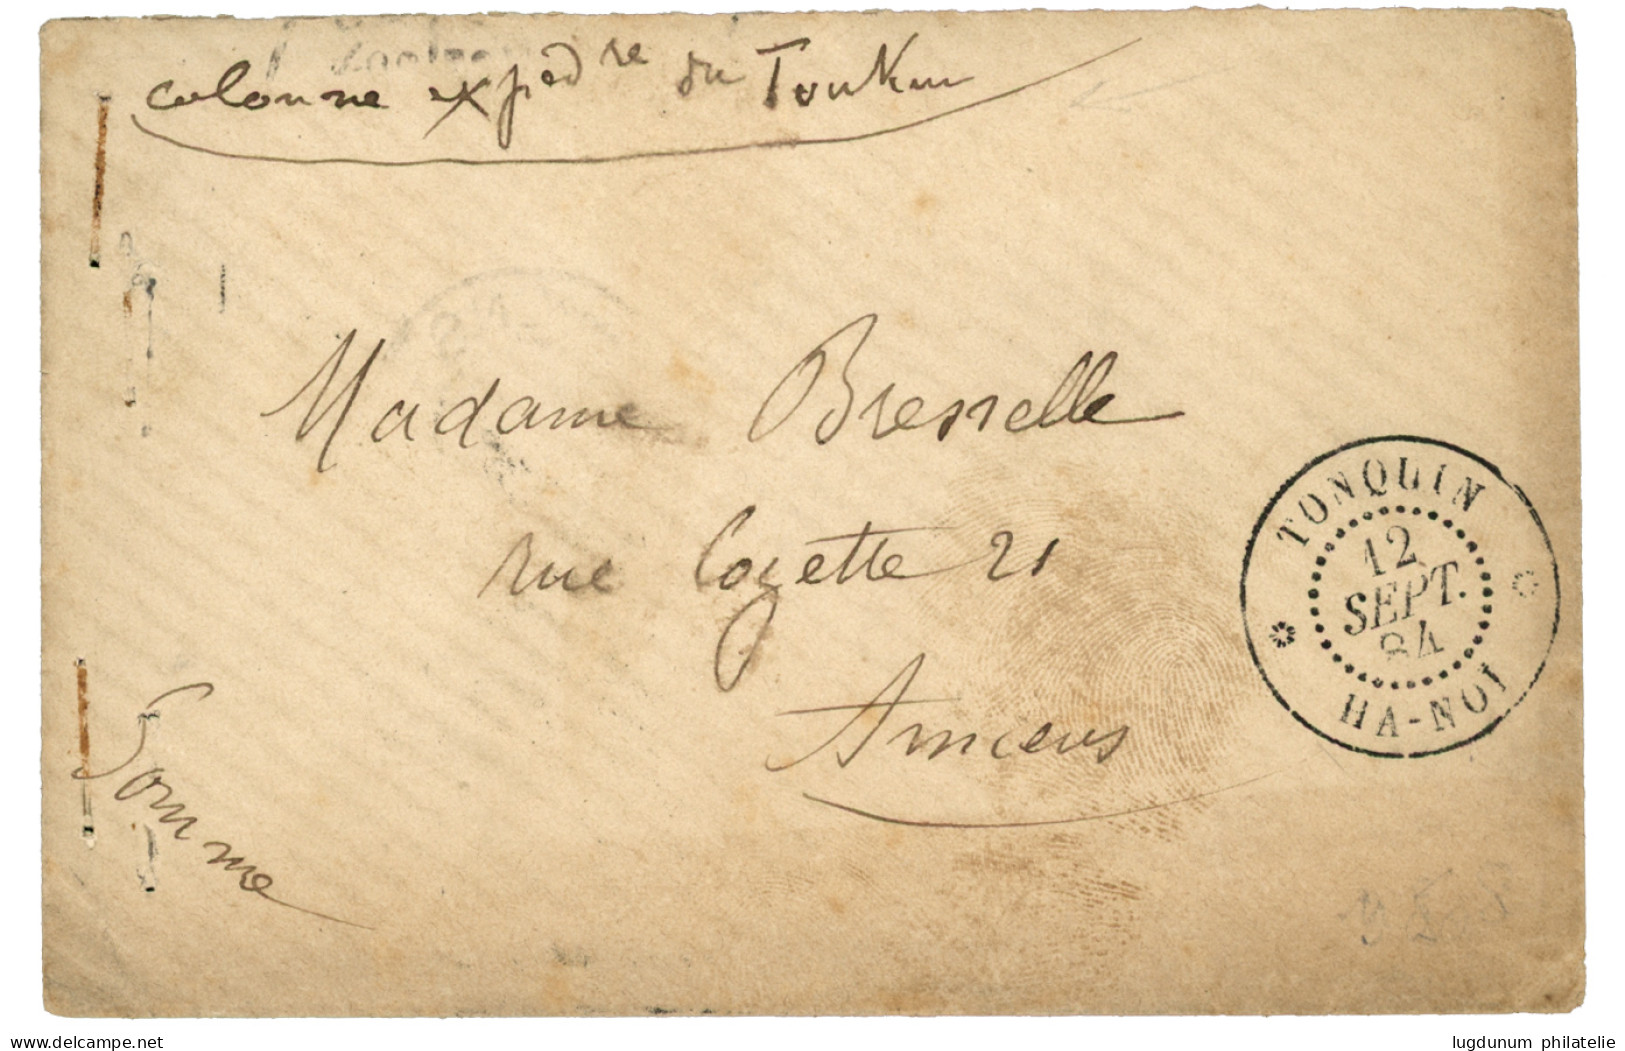 colonne expedre du Tonkin
Madame Bresselle
rue Cozette 21
Amiens
Somme
TONQUIN
12
SEPT.
84
HA-NOI
www.delcampe.net
lugdunum philatelie